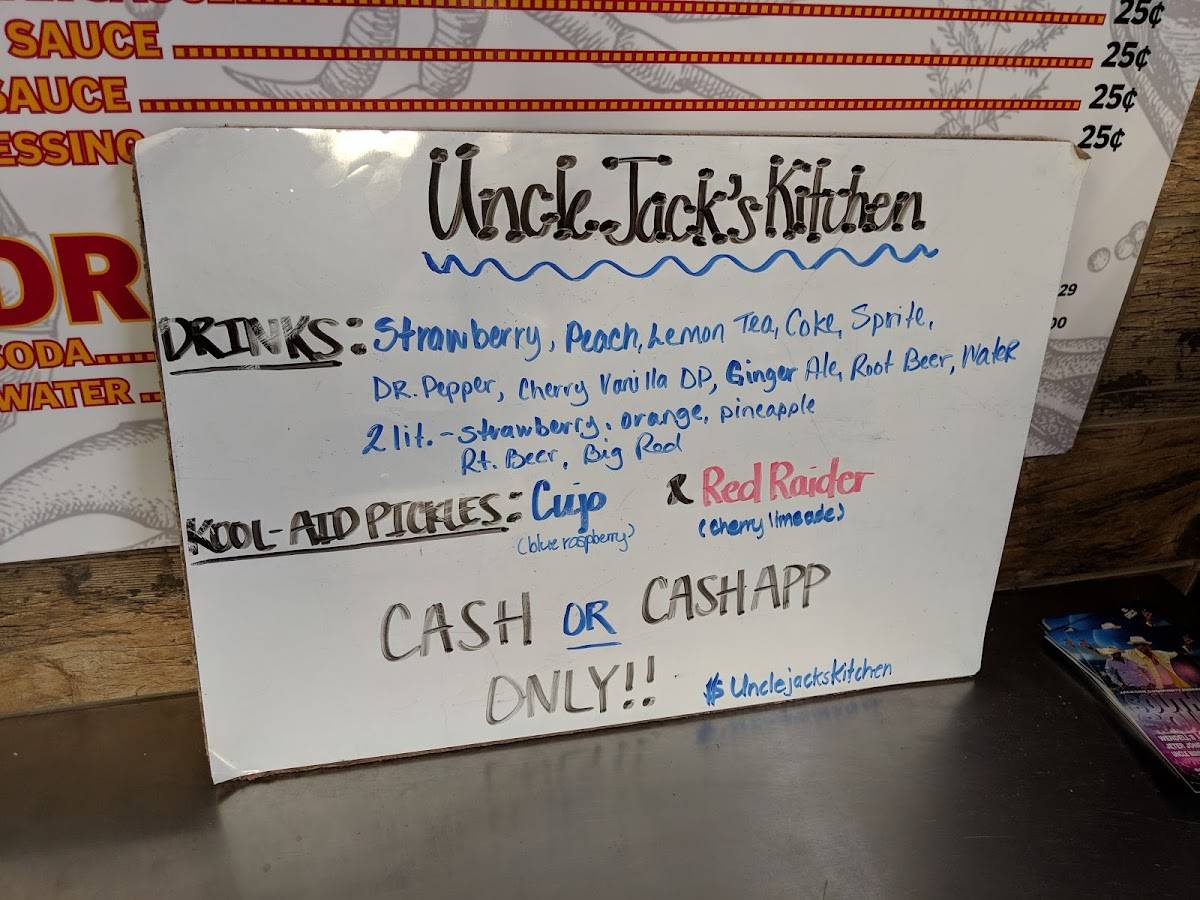 25¢
SAUCE 25¢
SAUCE 25¢
ESSING 25¢
Uncle Jack's Kitchen
DR
29
00
SODA
WATER
DRINKS: Strawberry, Peach, Lemon Tea, Coke, Sprite,
DR. Pepper, Cherry Vanilla DP, Ginger Ale, Root Beer, Water
2 lit. - strawberry, orange, pineapple
Rt. Beer, Big Red
KOOL-AID PICKLES: Cujo & Red Raider
(blue raspberry) (cherry limeade)
CASH OR CASHAPP
ONLY!!
$Unclejackskitchen